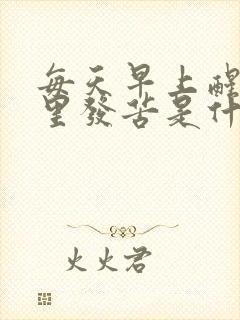 每天早上醒
里發苦是什
火火君